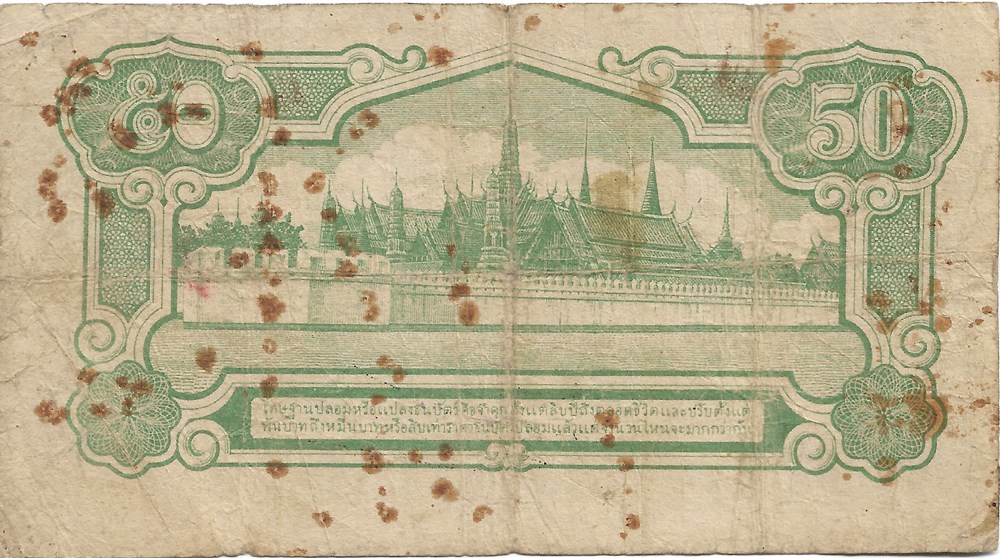 ๕๐
50
โทษฐานปลอมหรือแปลงธนบัตร์คือจำคุกตั้งแต่สิบปีถึงตลอดชีวิตและปรับตั้งแต่
พันบาทถึงหมื่นบาทหรือสิบเท่าราคาธนบัตร์ปลอมแล้วแต่จำนวนไหนจะมากกว่ากัน